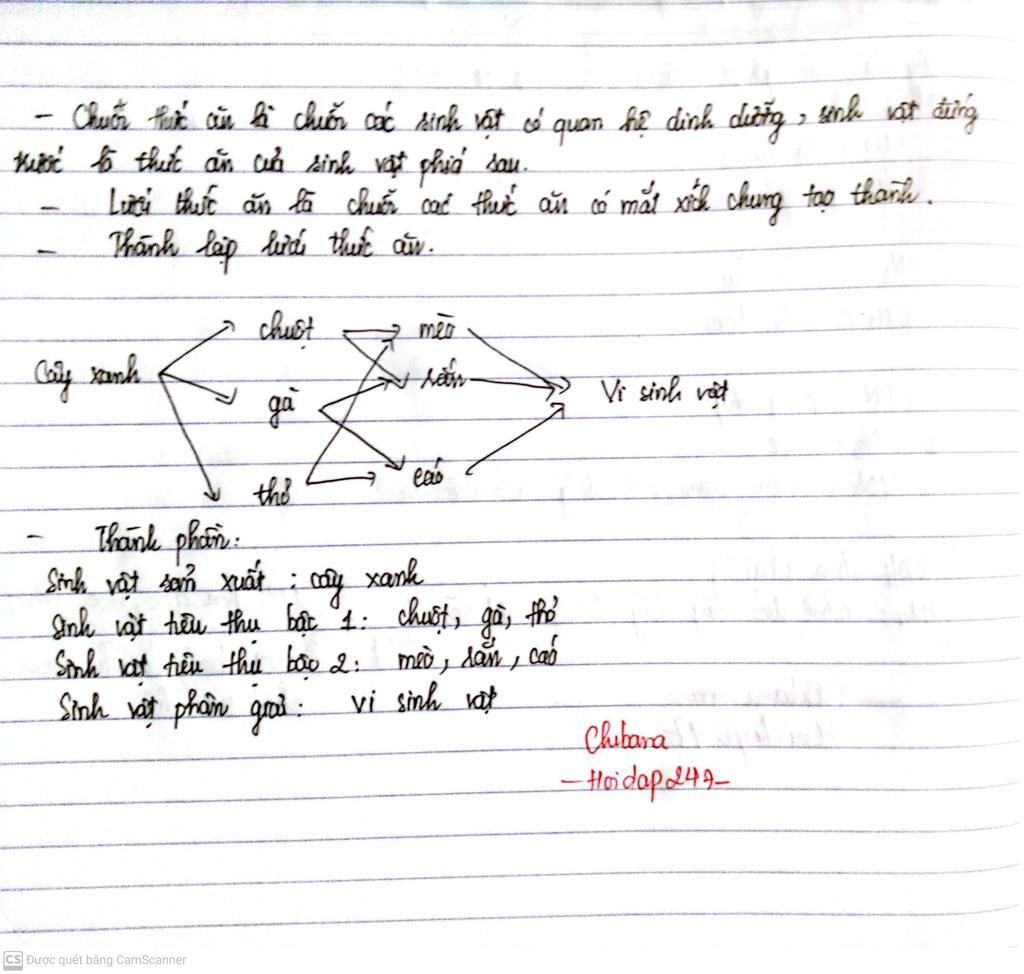 - Chuỗi thức ăn là chuỗi các sinh vật có quan hệ dinh dưỡng, sinh vật đứng
trước là thức ăn của sinh vật phía sau.
- Lưới thức ăn là chuỗi các thức ăn có mắt xích chung tạo thành.
- Thành lập lưới thức ăn.
chuột mèo
Cây xanh rắn Vi sinh vật
gà
thỏ cáo
- Thành phần:
Sinh vật sản xuất : cây xanh
Sinh vật tiêu thụ bậc 1: chuột, gà, thỏ
Sinh vật tiêu thụ bậc 2: mèo, rắn, cáo
Sinh vật phân giải: vi sinh vật
Chibana
-Hoidap247-
CS Được quét bằng CamScanner